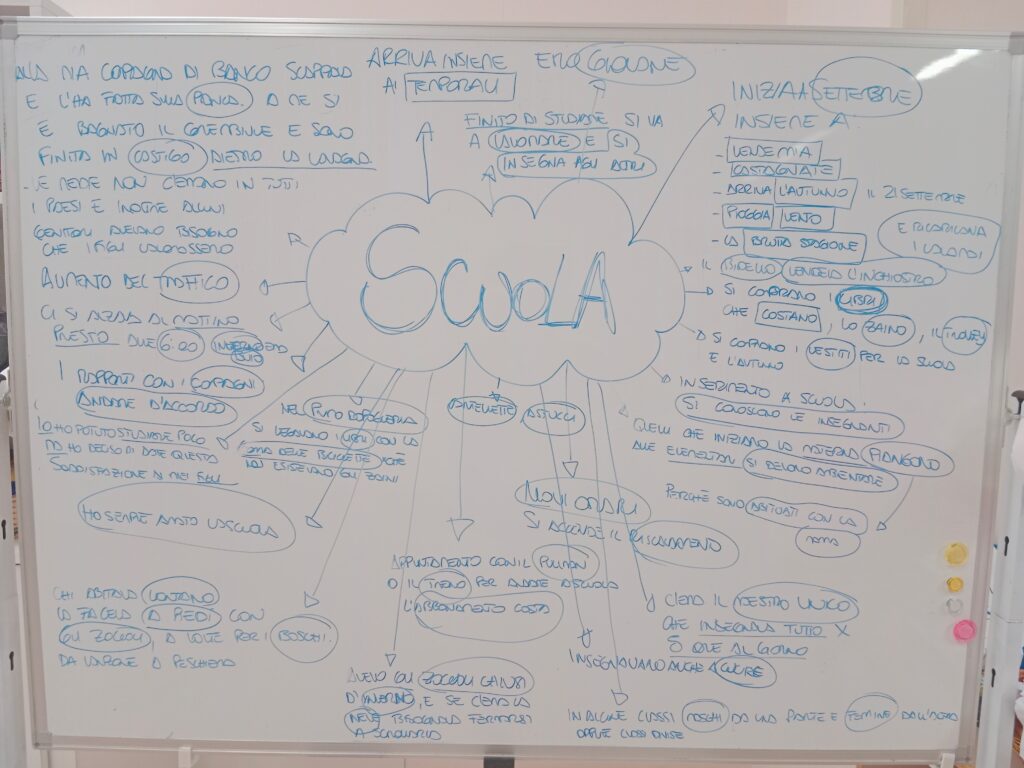 ALLA MIA COMPAGNA DI BANCO SCAPPAVA
E L'HA FATTA SULLA PANCA. A ME SI
È BAGNATO IL GREMBIULE E SONO
FINITA IN CASTIGO DIETRO LA LAVAGNA.
- LE MEDIE NON C'ERANO IN TUTTI
I PAESI E INOLTRE ALCUNI
GENITORI AVEVANO BISOGNO
CHE I FIGLI LAVORASSERO
AUMENTO DEL TRAFFICO
CI SI ALZAVA AL MATTINO
PRESTO ALLE 6:00
I RAPPORTI CON I COMPAGNI
ANDARE D'ACCORDO
IO HO POTUTO STUDIARE POCO
MA HO DECISO DI DARE QUESTA
SODDISFAZIONE AI MIEI FIGLI
HO SEMPRE AMATO LA SCUOLA
CHI ABITAVA LONTANO
LA FACEVA A PIEDI CON
GLI ZOCCOLI, A VOLTE PER I BOSCHI.
DA VAPRIE A PESCHIERA
ARRIVA INSIEME
AI TEMPORALI
E MOLTO
FINITO DI STUDIARE SI VA
A LAVORARE E SI
INSEGNA AGLI ALTRI
SCUOLA
NEL PRIMO DOPOGUERRA
SI LEGAVANO I LIBRI CON LA
DELLE BICICLETTE
NON ESISTEVANO GLI ZAINI
ASTUCCI
NUOVI ORARI
SI ACCENDE IL RISCALDAMENTO
APPUNTAMENTO CON IL PULLMAN
O IL TRENO PER ANDARE A SCUOLA
L'ABBONAMENTO COSTA
AVEVO GLI ZOCCOLI
D'INVERNO, E SE C'ERA LA
NEVE BISOGNAVA FERMARSI
A
INIZIA A SETTEMBRE
INSIEME A:
- VENDEMMIA
- CASTAGNATE
- ARRIVA L'AUTUNNO IL 21 SETTEMBRE
- PIOGGIA VENTO
- LA BRUTTA STAGIONE
E
IL BIDELLO VENDEVA L'INCHIOSTRO
SI COMPRANO I LIBRI
CHE COSTANO, LO ZAINO, IL TROLLEY
SI COMPRANO I VESTITI PER LA SCUOLA
E L'AUTUNNO
INSERIMENTO A SCUOLA
SI CONOSCONO LE INSEGNANTI
QUELLI CHE INIZIANO LA MATERNA PIANGONO
ALLE ELEMENTARI SI DEVONO AMBIENTARE
PERCHÈ SONO ABITUATI CON LA
MAMMA
C'ERA IL MAESTRO UNICO
CHE INSEGNAVA TUTTO X
5 ORE AL GIORNO
INSEGNAVANO ANCHE A CUCIRE
IN ALCUNE CLASSI MASCHI DA UNA PARTE E FEMMINE DALL'ALTRA
OPPURE CLASSI DIVISE